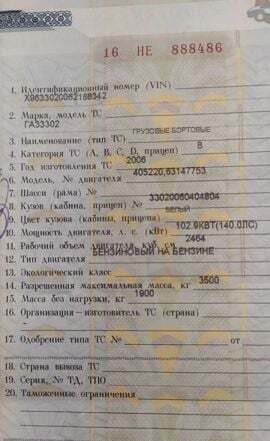 16 НЕ 888486
1. Идентификационный номер (VIN)
X9633020062188342
2. Марка, модель ТС
ГАЗ3302
ГРУЗОВЫЕ БОРТОВЫЕ
3. Наименование (тип ТС)
4. Категория ТС (A, B, C, D, прицеп) B
5. Год изготовления ТС 2006
6. Модель, № двигателя 405220,63147753
7. Шасси (рама) №
8. Кузов (кабина, прицеп) № 33020060404804
9. Цвет кузова (кабины, прицепа) БЕЛЫЙ
10. Мощность двигателя, л. с. (кВт) 102.9КВТ(140.0ЛС)
11. Рабочий объем двигателя, куб. см 2464
12. Тип двигателя БЕНЗИНОВЫЙ НА БЕНЗИНЕ
13. Экологический класс
14. Разрешенная максимальная масса, кг 3500
15. Масса без нагрузки, кг 1900
16. Организация—изготовитель ТС (страна)
17. Одобрение типа ТС № от
18. Страна вывоза ТС
19. Серия, № ТД, ТПО
20. Таможенные ограничения